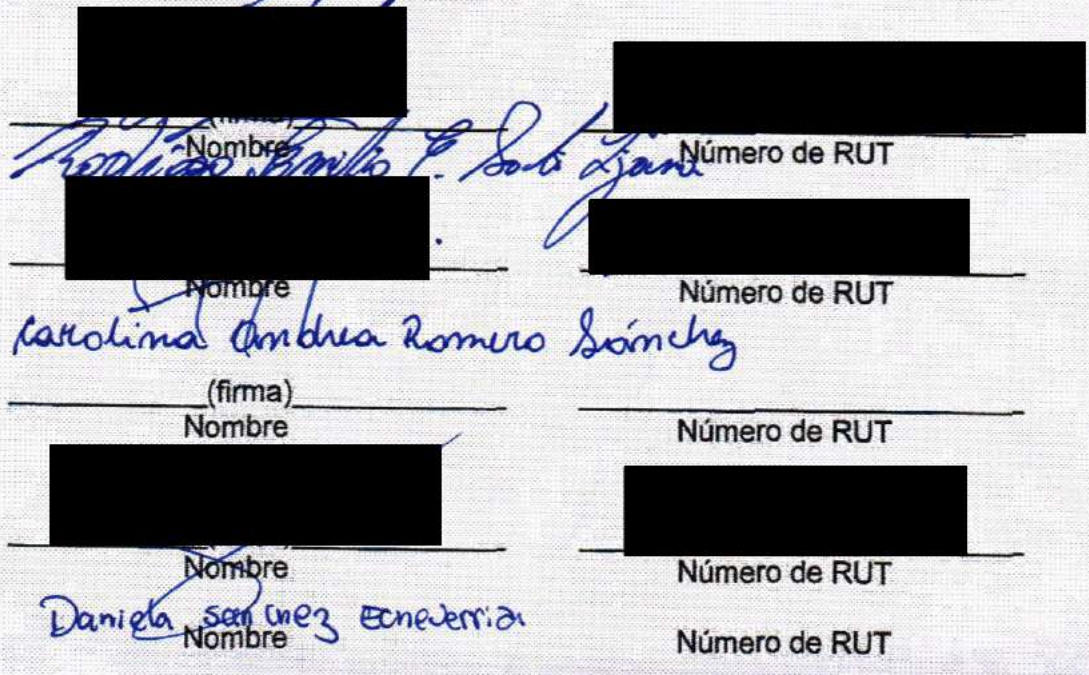 Nombre Número de RUT
Rodrigo Emilio
Nombre Número de RUT
Carolina Andrea Romero Sánchez
(firma)
Nombre Número de RUT
Nombre Número de RUT
Daniela Sanchez Echeverria
Nombre Número de RUT